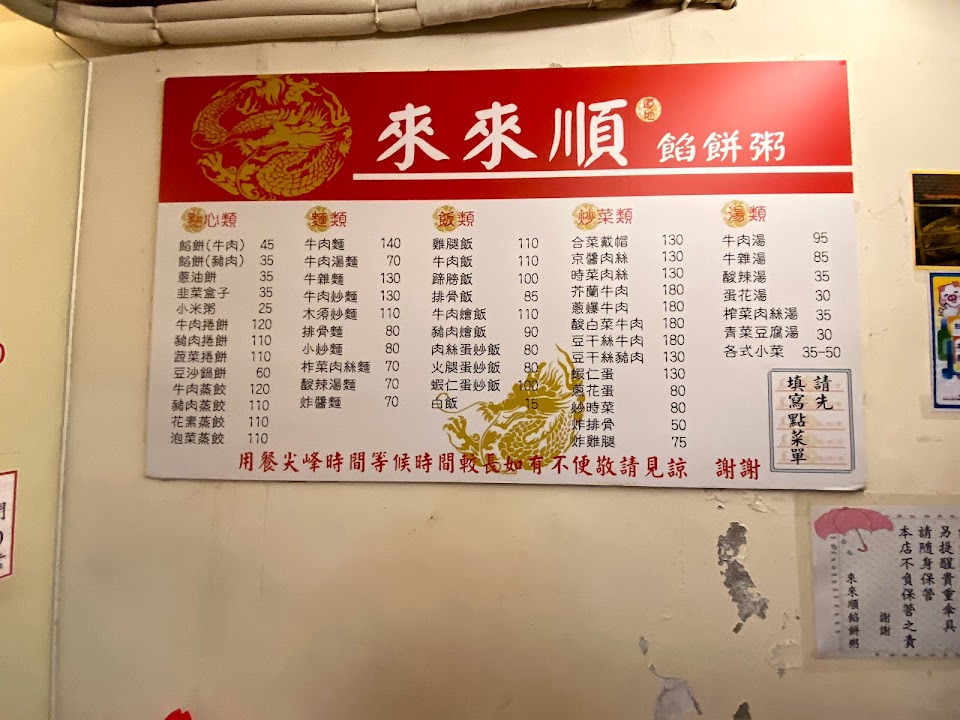 來來順 道地 餡餅粥
點心類
餡餅(牛肉) 45
餡餅(豬肉) 35
蔥油餅 35
韭菜盒子 35
小米粥 25
牛肉捲餅 120
豬肉捲餅 110
蔬菜捲餅 110
豆沙鍋餅 60
牛肉蒸餃 120
豬肉蒸餃 110
花素蒸餃 110
泡菜蒸餃 110
麵類
牛肉麵 140
牛肉湯麵 70
牛雜麵 130
牛肉炒麵 130
木須炒麵 110
排骨麵 80
小炒麵 80
柞菜肉絲麵 70
酸辣湯麵 70
炸醬麵 70
飯類
雞腿飯 110
牛肉飯 110
蹄膀飯 100
排骨飯 85
牛肉燴飯 110
豬肉燴飯 90
肉絲蛋炒飯 80
火腿蛋炒飯 80
蝦仁蛋炒飯 100
白飯 15
炒菜類
合菜戴帽 130
京醬肉絲 130
時菜肉絲 130
芥蘭牛肉 180
蔥爆牛肉 180
酸白菜牛肉 180
豆干絲牛肉 180
豆干絲豬肉 130
蝦仁蛋 130
蔥花蛋 80
炒時菜 80
炸排骨 50
炸雞腿 75
湯類
牛肉湯 95
牛雜湯 85
酸辣湯 35
蛋花湯 30
榨菜肉絲湯 35
青菜豆腐湯 30
各式小菜 35-50
請先
填寫點菜單
用餐尖峰時間等候時間較長如有不便敬請見諒 謝謝
另提醒貴重傘具
請隨身保管
本店不負保管之責
謝謝
來來順餡餅粥